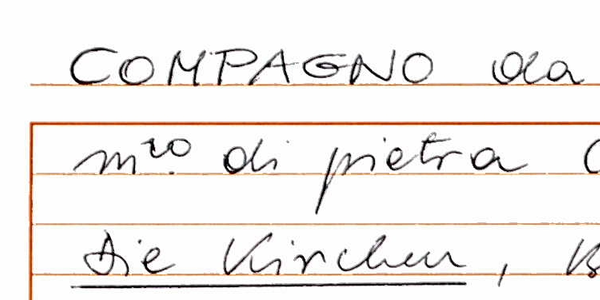 COMPAGNO da
m.ro di pietra
Die Kirchen,